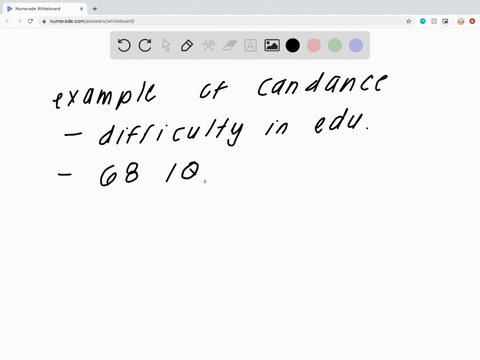 Numerade Whiteboard
numerade.com/answers/whiteboard/
example of candance
- difficulty in edu.
- 68 IQ